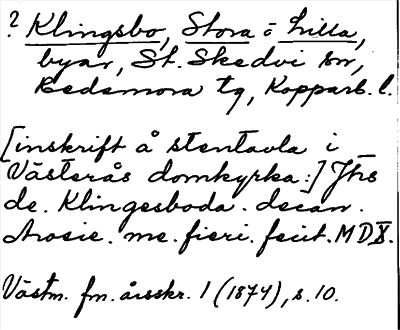 ? Klingsbo, Stora o Lilla,
byar, St. Skedvi sn,
Hedemora tg, Kopparb. l.
[inskrift å stentavla i
Västerås domkyrka:] Jhs
de. Klingesboda. decan.
Arosie. me. fieri. fecit. MDX.
Västm. fm. årsskr. 1 (1874), s. 10.